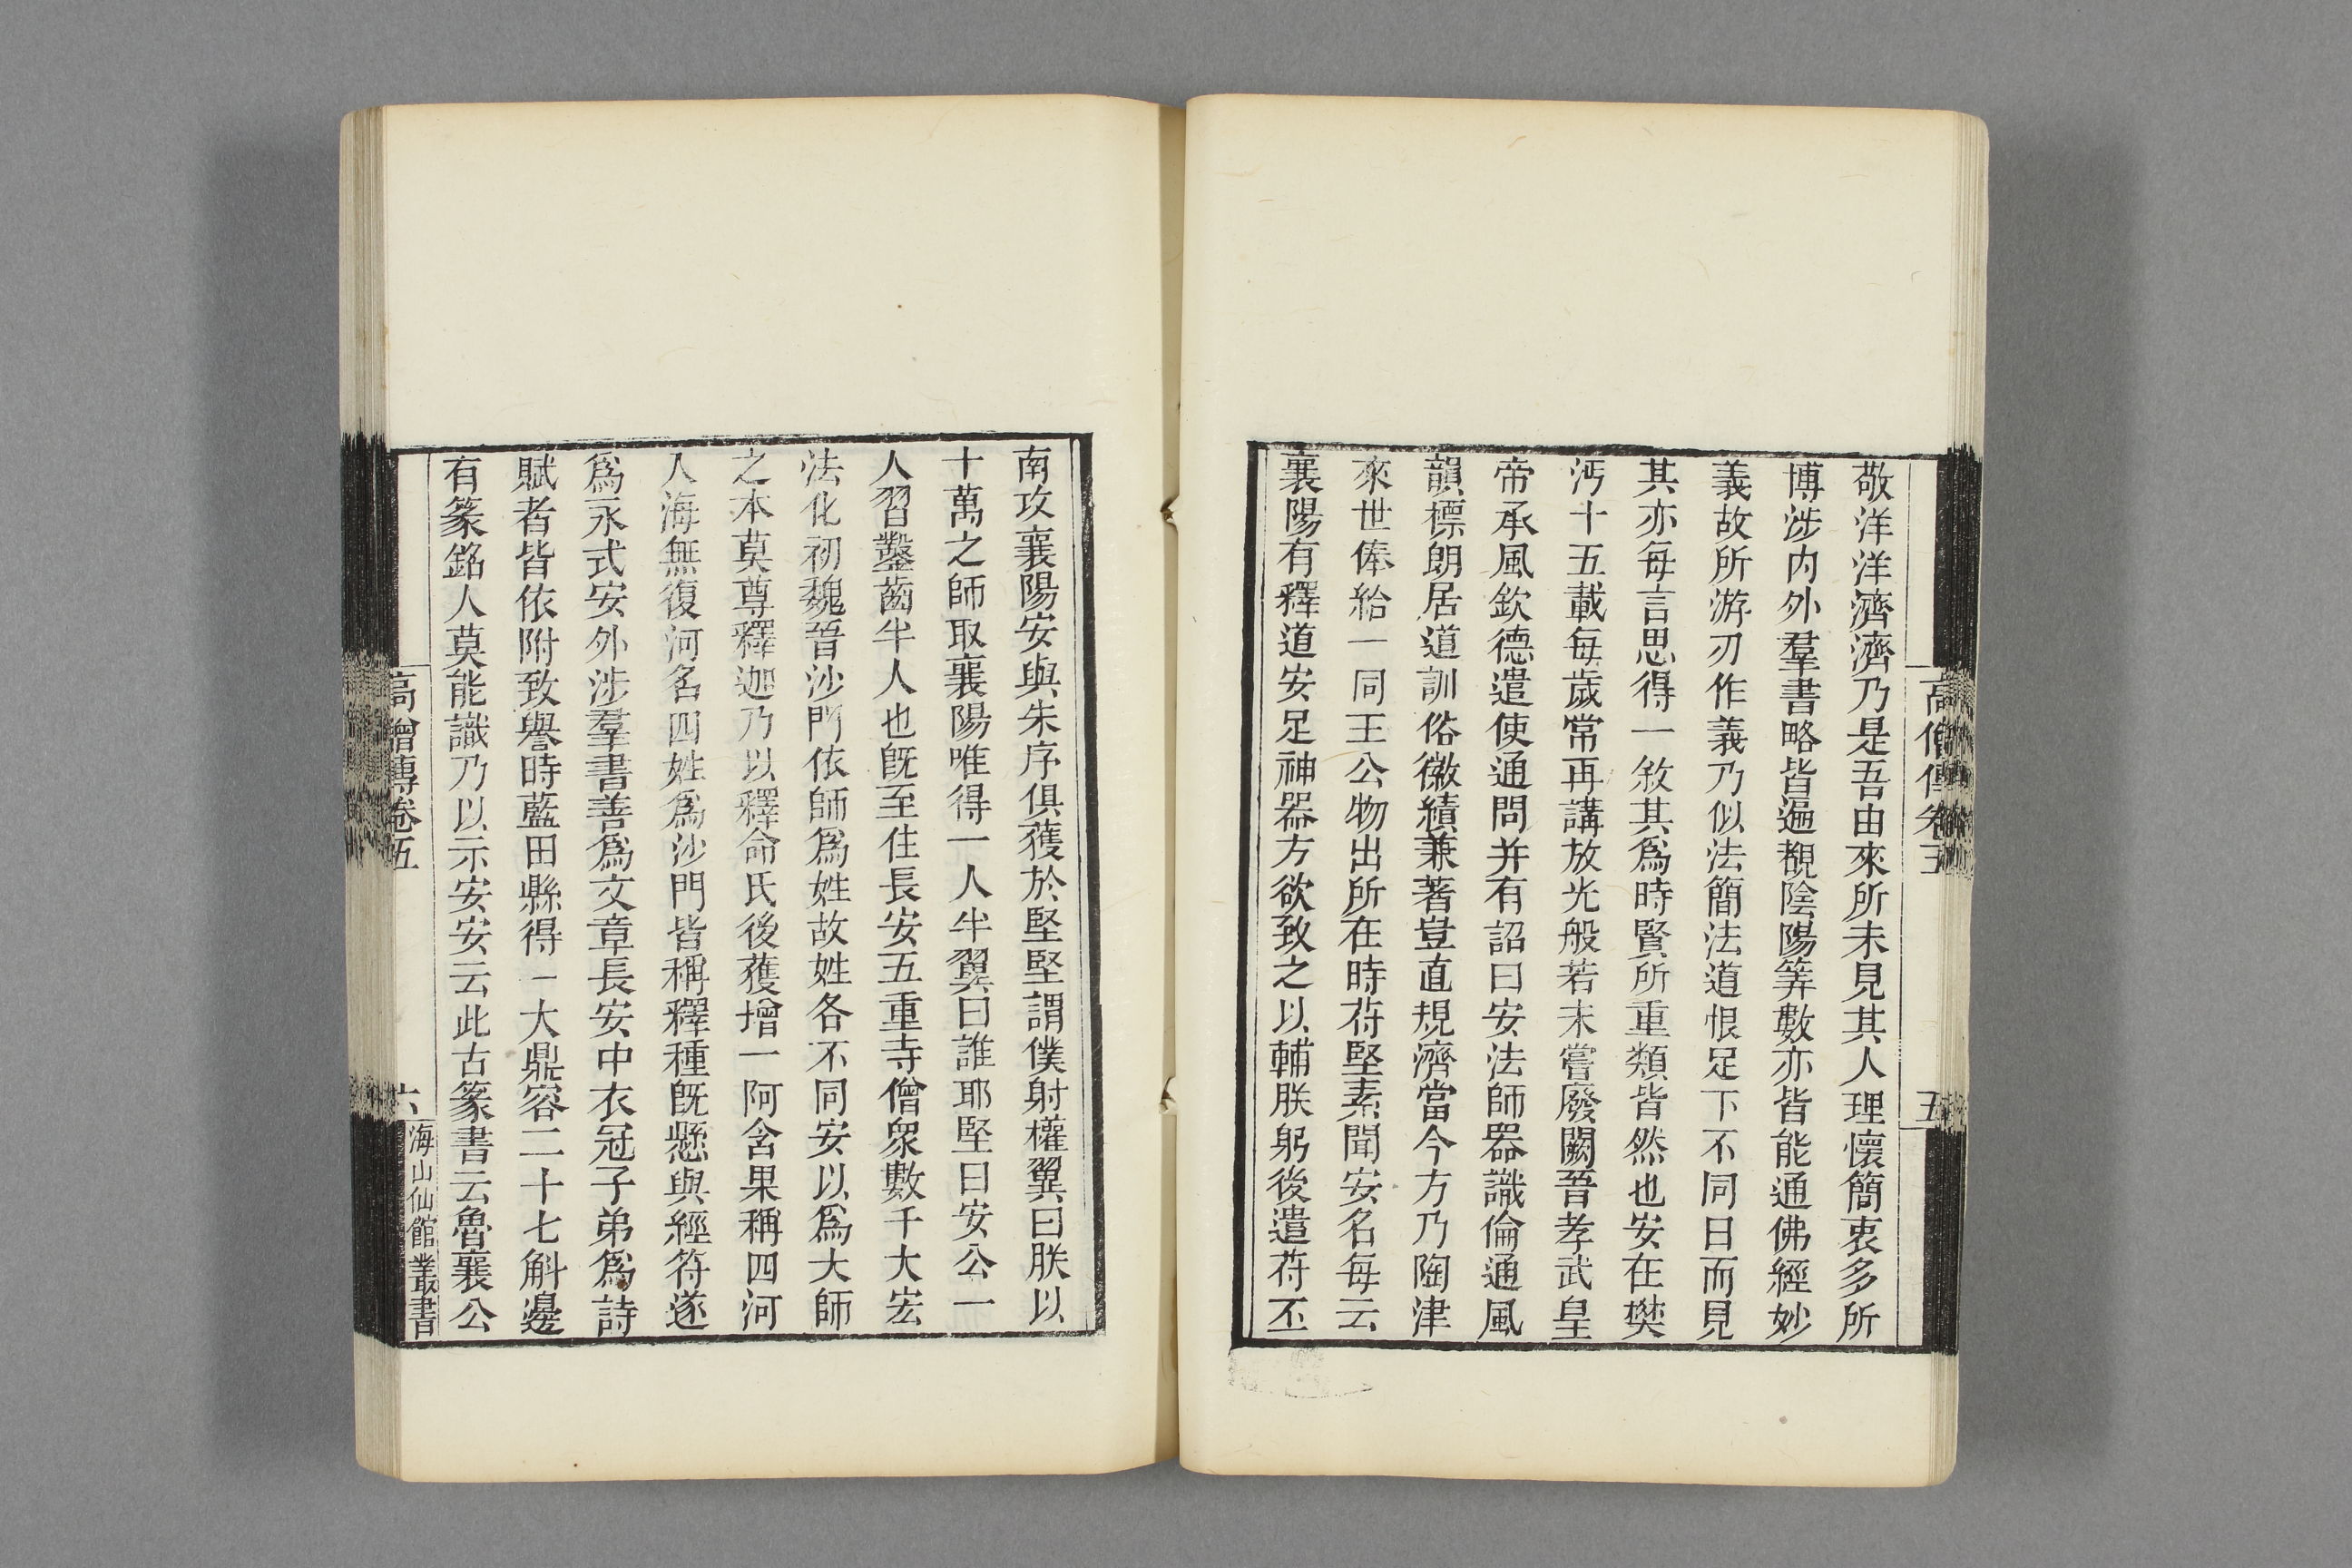 高僧傳卷五
五
敬洋洋濟濟乃是吾由來所未見其人理懷簡衷多所
博涉内外羣書略皆遍覩陰陽筭數亦皆能通佛經妙
義故所游刃作義乃似法簡法道恨足下不同日而見
其亦每言思得一敘其爲時賢所重類皆然也安在樊
沔十五載每歲常再講放光般若未嘗廢闕晉孝武皇
帝承風欽德遣使通問并有詔曰安法師器識倫通風
韻標朗居道訓俗徽績兼著豈直規濟當今方乃陶津
來世俸給一同王公物出所在時苻堅素聞安名每云
襄陽有釋道安足神器方欲致之以輔朕躬後遣苻丕
南攻襄陽安與朱序俱獲於堅堅謂僕射權翼曰朕以
十萬之師取襄陽唯得一人半翼曰誰耶堅曰安公一
人習鑿齒半人也既至住長安五重寺僧衆數千大宏
法化初魏晉沙門依師爲姓故姓各不同安以爲大師
之本莫尊釋迦乃以釋命氏後獲增一阿含果稱四河
入海無復河名四姓爲沙門皆稱釋種既懸與經符遂
爲永式安外涉羣書善爲文章長安中衣冠子弟爲詩
賦者皆依附致譽時藍田縣得一大鼎容二十七斛邊
有篆銘人莫能識乃以示安安云此古篆書云魯襄公
高僧傳卷五
六
海山仙館叢書